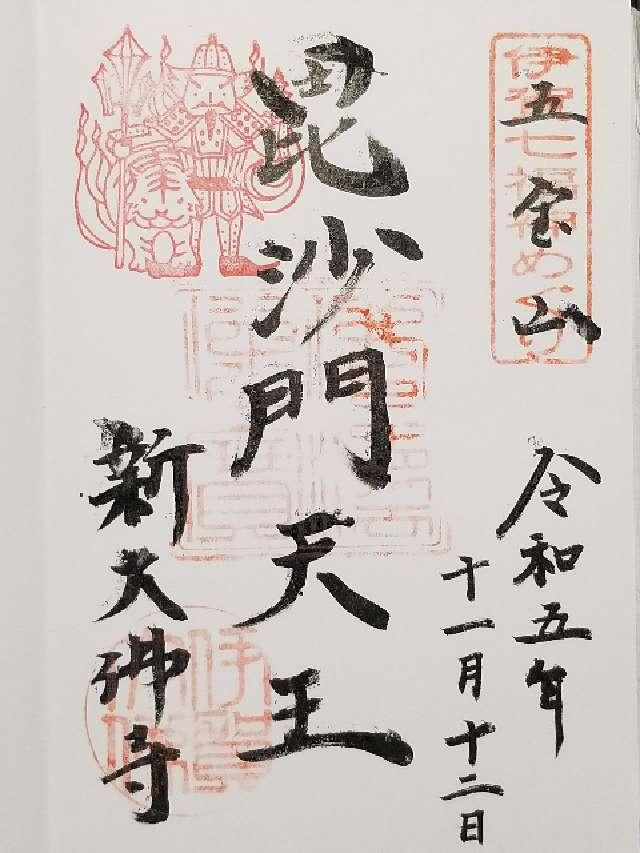 伊賀七福神めぐり
五宝山
令和五年
十一月十二日
毘沙門天王
新大佛寺